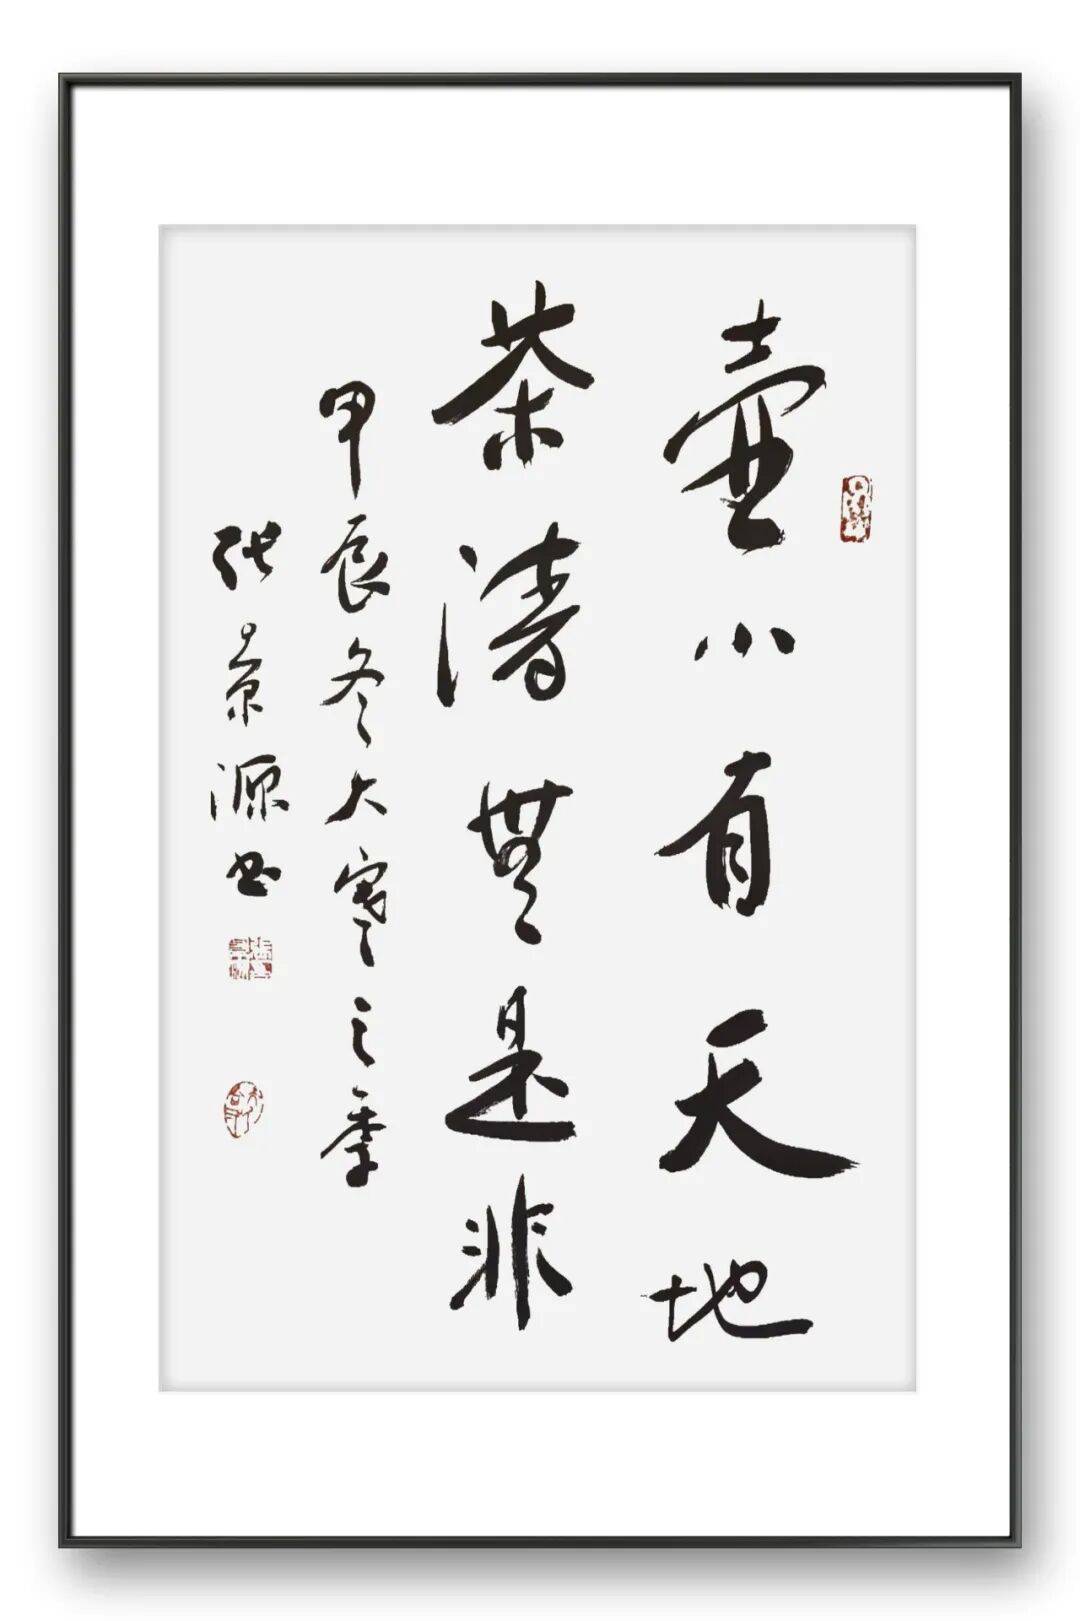 壶小有天地
茶清無是非
甲辰冬大寒之季
张景源书